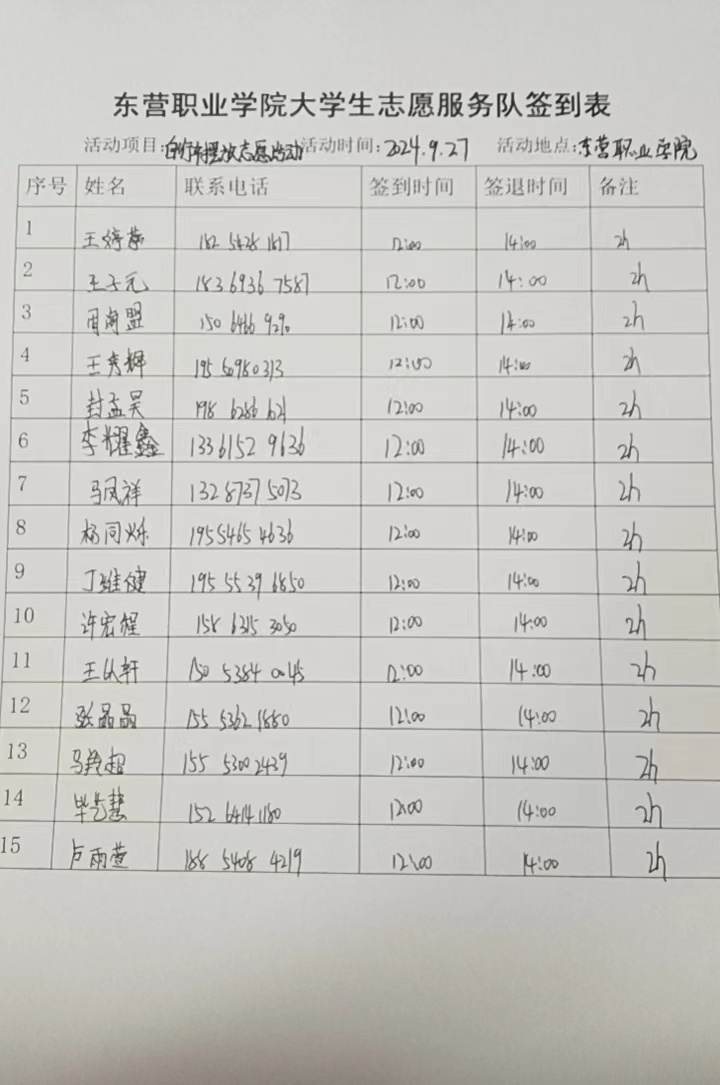 东营职业学院大学生志愿服务队签到表
活动项目: 摆放志愿活动 活动时间: 2024.9.27 活动地点: 东营职业学院
序号 姓名 联系电话 签到时间 签退时间 备注
1 王婷 182 5428 1817 12:00 14:00 2h
2 王子元 183 6936 7587 12:00 14:00 2h
3 盟 150 6466 9290 12:00 14:00 2h
4 王秀辉 195 5098 0313 12:00 14:00 2h
5 封孟昊 198 6286 12:00 14:00 2h
6 李耀鑫 133 6152 9636 12:00 14:00 2h
7 马凤祥 132 8737 5073 12:00 14:00 2h
8 杨同烁 195 5465 4636 12:00 14:00 2h
9 丁维健 195 5539 6850 12:00 14:00 2h
10 许宏程 158 6315 3050 12:00 14:00 2h
11 王以轩 150 5384 0045 12:00 14:00 2h
12 张晶晶 155 5362 1880 12:00 14:00 2h
13 马 超 155 5300 2439 12:00 14:00 2h
14 毕 慧 152 6414 1180 12:00 14:00 2h
15 卢雨萱 188 5408 4219 12:00 14:00 2h